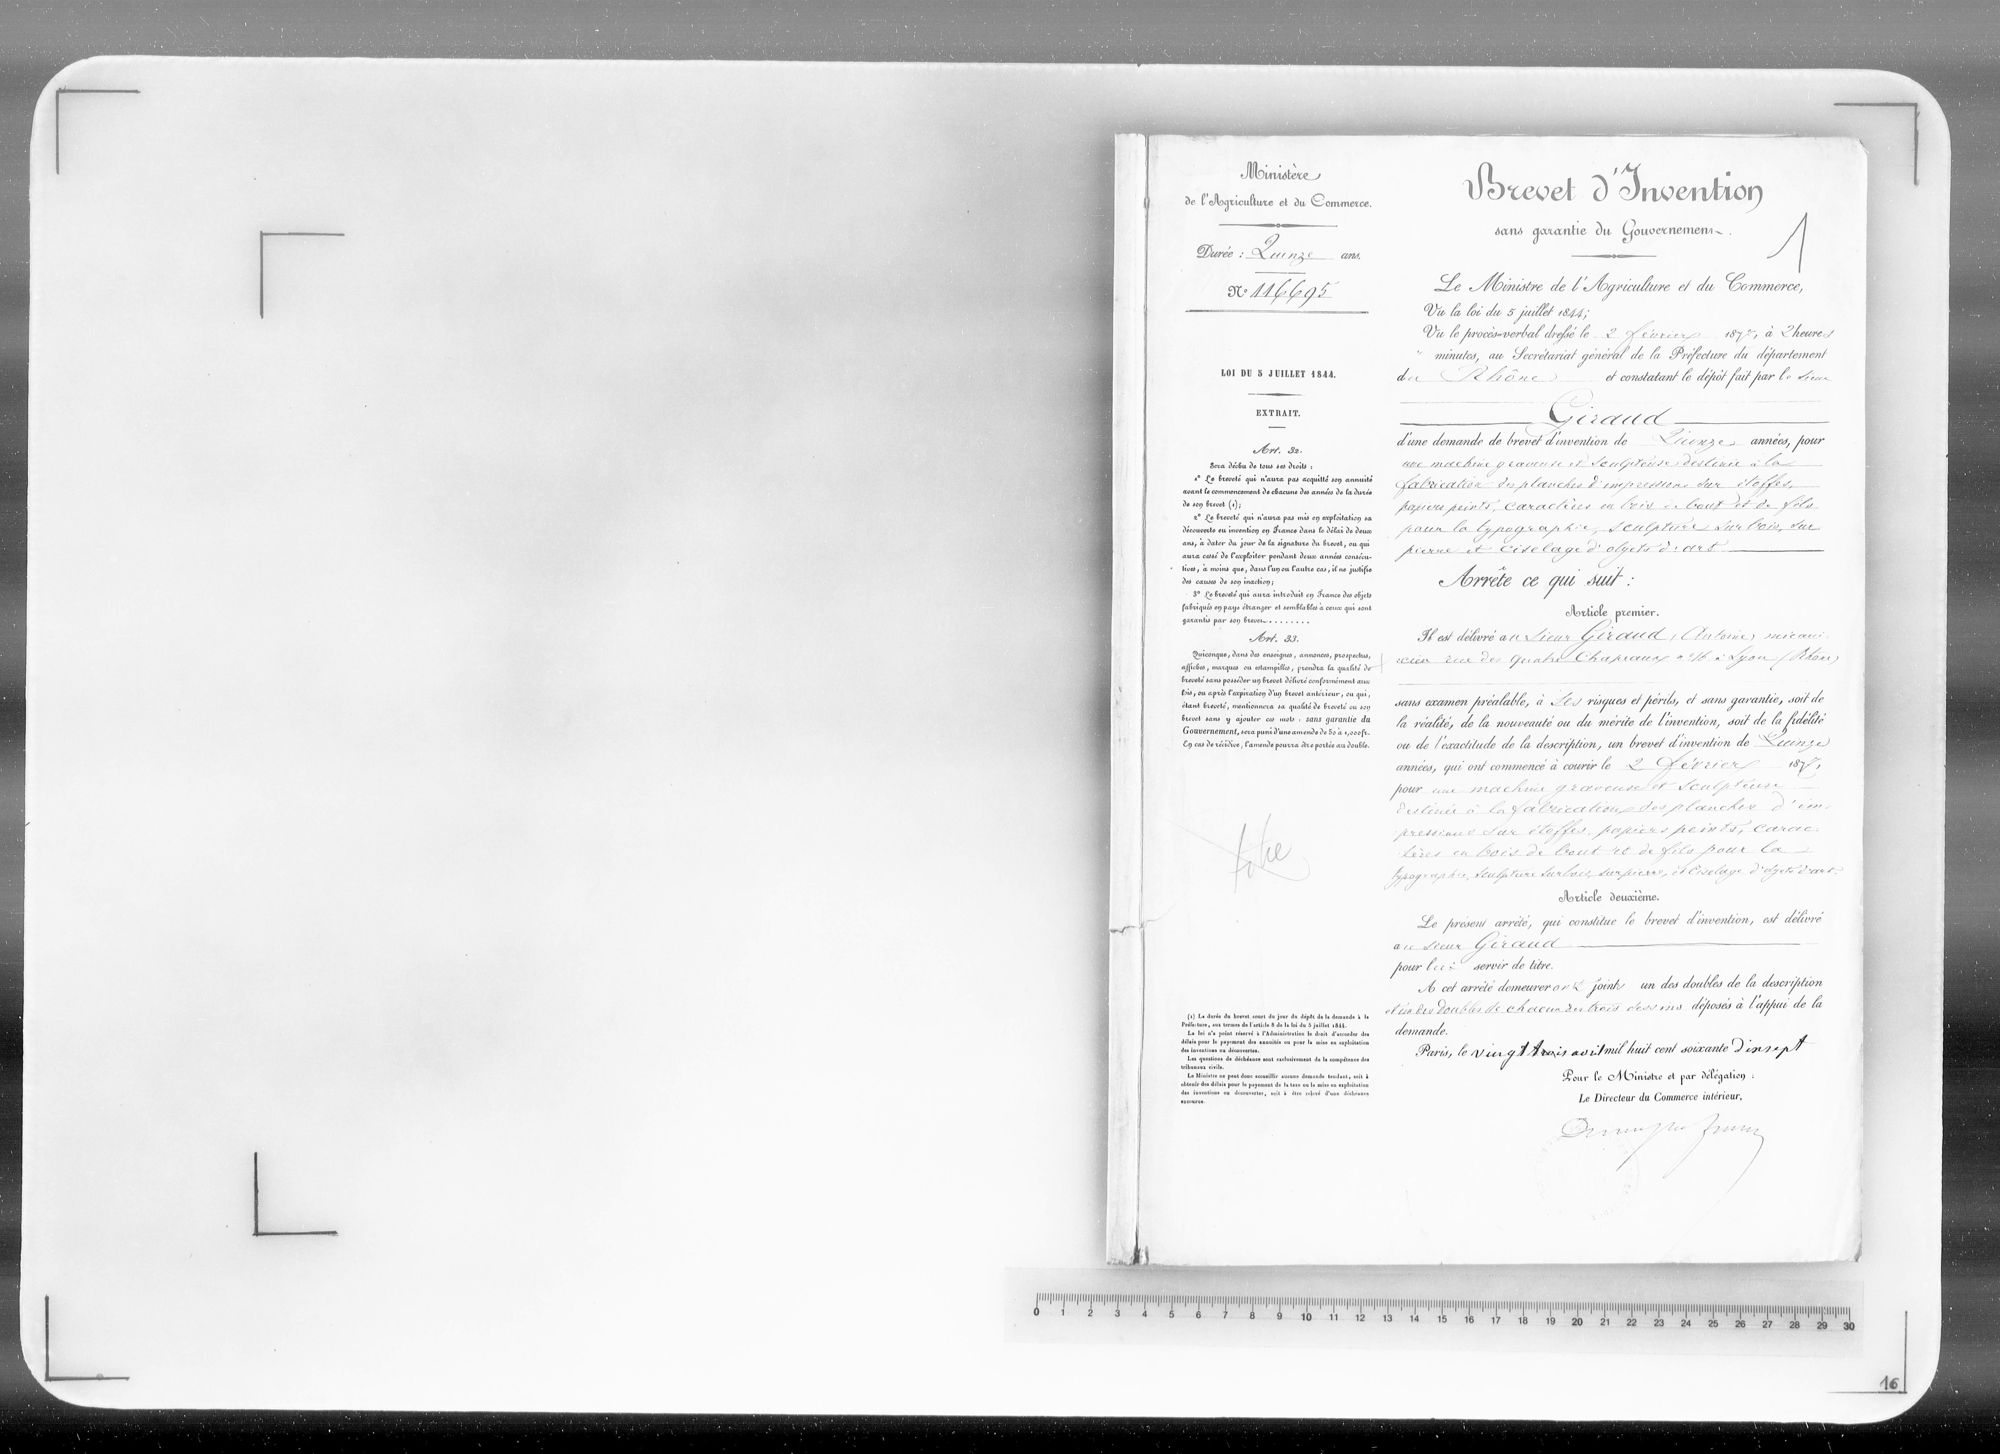 Ministère
de l'Agriculture et du Commerce.
Durée : Quinze ans.
N° 116695
LOI DU 5 JUILLET 1844.
EXTRAIT.
Art. 32.
Sera déchu de tous ses droits :
1° Le breveté qui n'aura pas acquitté son annuité
avant le commencement de chacune des années de la durée
de son brevet (1);
2° Le breveté qui n'aura pas mis en exploitation sa
découverte ou invention en France dans le délai de deux
ans, à dater du jour de la signature du brevet, ou qui
aura cessé de l'exploiter pendant deux années consécu-
tives, à moins que, dans l'un ou l'autre cas, il ne justifie
des causes de son inaction;
3° Le breveté qui aura introduit en France des objets
fabriqués en pays étranger et semblables à ceux qui sont
garantis par son brevet.........
Art. 33.
Quiconque, dans des enseignes, annonces, prospectus,
affiches, marques ou estampilles, prendra la qualité de
breveté sans posséder un brevet délivré conformément aux
lois, ou après l'expiration d'un brevet antérieur, ou qui,
étant breveté, mentionnera sa qualité de breveté ou son
brevet sans y ajouter ces mots : sans garantie du
Gouvernement, sera puni d'une amende de 50 à 1,000 fr.
En cas de récidive, l'amende pourra être portée au double.
titre
(1) La durée du brevet court du jour du dépôt de la demande à la
Préfecture, aux termes de l'article 8 de la loi du 5 juillet 1844.
La loi n'a point réservé à l'Administration le droit d'accorder des
délais pour le payement des annuités ou pour la mise en exploitation
des inventions ou découvertes.
Les questions de déchéance sont exclusivement de la compétence des
tribunaux civils.
Le Ministre ne peut donc accueillir aucune demande tendant, soit à
obtenir des délais pour le payement de la taxe ou la mise en exploitation
des inventions ou découvertes, soit à être relevé d'une déchéance
encourue.
Brevet d'Invention
sans garantie du Gouvernement.
1
Le Ministre de l'Agriculture et du Commerce,
Vu la loi du 5 juillet 1844;
Vu le procès-verbal dressé le 2 février 1877, à 2 heures
" minutes, au Secrétariat général de la Préfecture du département
du Rhône et constatant le dépôt fait par le sieur
Giraud
d'une demande de brevet d'invention de Quinze années, pour
une machine graveuse et sculpteuse destinée à la
fabrication des planches d'impressions sur étoffes,
papiers peints, caractères en bois de bout et de fils
pour la typographie, sculpture sur bois, sur
pierre et ciselage d'objets d'art
Arrête ce qui suit :
Article premier.
Il est délivré au sieur Giraud, Antoine, mécani-
cien rue des quatre Chapeaux à Lyon (Rhône)
sans examen préalable, à ses risques et périls, et sans garantie, soit de
la réalité, de la nouveauté ou du mérite de l'invention, soit de la fidélité
ou de l'exactitude de la description, un brevet d'invention de Quinze
années, qui ont commencé à courir le 2 février 1877,
pour une machine graveuse et sculpteuse
destinée à la fabrication des planches d'im-
pressions sur étoffes, papiers peints, carac-
tères en bois de bout et de fils pour la
typographie, sculpture sur bois, sur pierre, et ciselage d'objets d'art.
Article deuxième.
Le présent arrêté, qui constitue le brevet d'invention, est délivré
au sieur Giraud
pour lui servir de titre.
A cet arrêté demeureront joints un des doubles de la description
et un des doubles de chacun des trois dessins déposés à l'appui de la
demande.
Paris, le vingt trois avril mil huit cent soixante dix sept
Pour le Ministre et par délégation :
Le Directeur du Commerce intérieur,
0 1 2 3 4 5 6 7 8 9 10 11 12 13 14 15 16 17 18 19 20 21 22 23 24 25 26 27 28 29 30
16